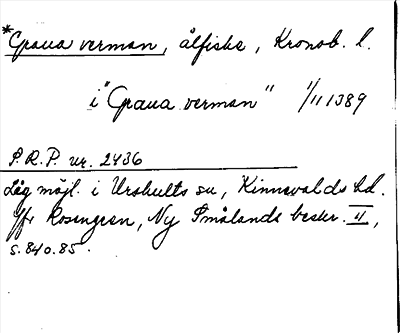 *Graua verman, ålfiske, Kronob. l.
i "Graua verman" 1/11 1389
P.R.P. nr. 2436
Låg möjl. i Urshults sn, Kinnevalds hd.
Jfr Rosengren, Ny Smålands beskr. II,
s. 840.85.